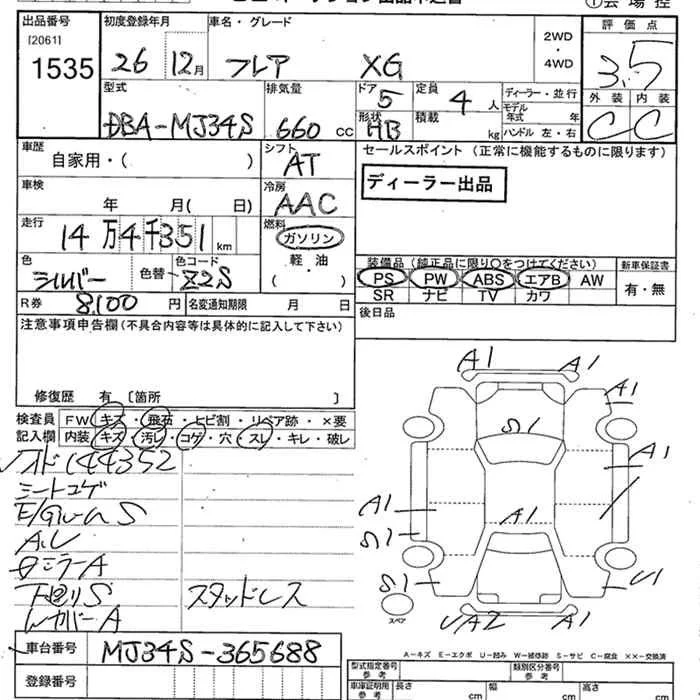 出品番号
[2061]
1535
初度登録年月
26 12月
車名・グレード
フレア XG
2WD
・
4WD
評価点
3.5
外装 内装
C C
型式
DBA-MJ34S
排気量
660 CC
ドア
5
形状
HB
定員
4 人
積載
kg
ディーラー・並行
モデル年式 年
ハンドル 左・右
車歴
自家用・( )
シフト
AT
車検
年 月( 日)
冷房
AAC
走行
14万4千351 km
燃料
ガソリン
軽・油
( )
色
シルバー
色替
色コード
Z2S
R券
8,100 円
名変通知期限 月 日
セールスポイント (正常に機能するものに限ります)
ディーラー出品
装備品(純正品に限り○をつけてください)
PS PW ABS エアB AW
SR ナビ TV カワ
新車保証書
有・無
後日品
注意事項申告欄(不具合内容等は具体的に記入して下さい)
修復歴 有 〔箇所 〕
検査員
記入欄
FW キズ・飛石・ヒビ割・リペア跡・×要
内装 キズ・汚レ・コゲ・穴・スレ・キレ・破レ
144352
シートコゲ
下回りS
スタッドレス
A1 A1
A1
S1
A1
A1
A1
S1
S1
U1
UA2 A1
スペア
A-キズ E-エクボ U-凹み W-補修跡 S-サビ C-腐食 ××-交換済
車台番号
MJ34S-365688
登録番号
型式指定番号
参考
類別区分番号
参考
車庫証明用
参考
長さ cm
幅 cm
高さ cm